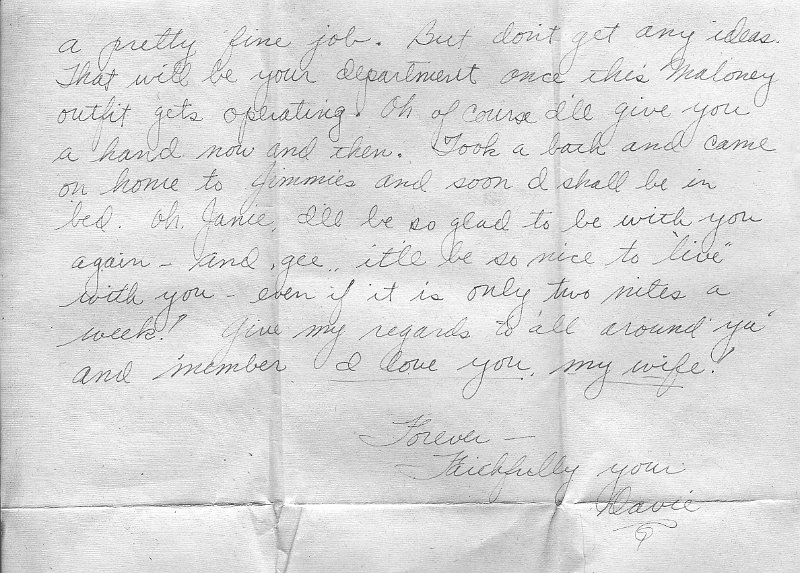 a pretty fine job. But don't get any ideas.
That will be your department once this Maloney
outfit gets operating. Oh of course I'll give you
a hand now and then. Took a bath and came
on home to Jimmies and soon I shall be in
bed. Oh, Janie, I'll be so glad to be with you
again - and, gee, it'll be so nice to "live"
with you - even if it is only two nites a
week! Give my regards to "all around ya"
and 'member I love you, my wife!
Forever -
Faithfully your
Davie